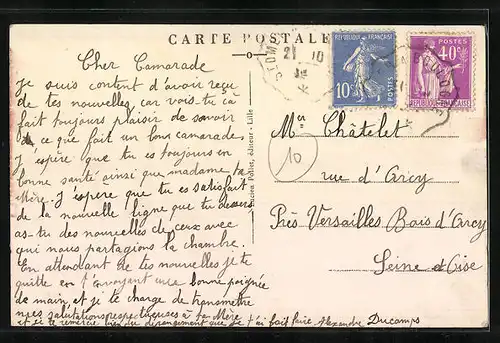 CARTE POSTALE
Cher Camarade
je suis content d'avoir reçu
de tes nouvelles car vois-tu ça
fait toujours plaisir de savoir
ce que fait un bon camarade.
J'espère que tu es toujours en
bonne santé ainsi que madame ta
Mère. J'espère que tu es satisfait
de la nouvelle ligne que tu dessers
as-tu des nouvelles de ceux avec
qui nous partagions la chambre.
En attendant de tes nouvelles je te
quitte en t'envoyant une bonne poignée
de main, et je te charge de transmettre
mes salutations respectueuses à ta Mère
et je te remercie bien du dérangement que je t'ai fait faire. Alexandre Ducamps
Editeur - Lille
21 10
RÉPUBLIQUE FRANÇAISE
10c
POSTES
POSTES
40c
REPUBLIQUE FRANÇAISE
Mr Châtelet
10
rue d'Arcy
Près Versailles Bois d'Arcy
Seine et Oise